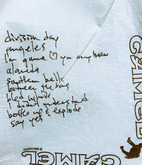 division day
angeles
I'm gonna ♡ you any how
alameda
southern belle
between the bars
pled
didn't understand
bottle up & explode
say yes
CAMEL
CAMEL